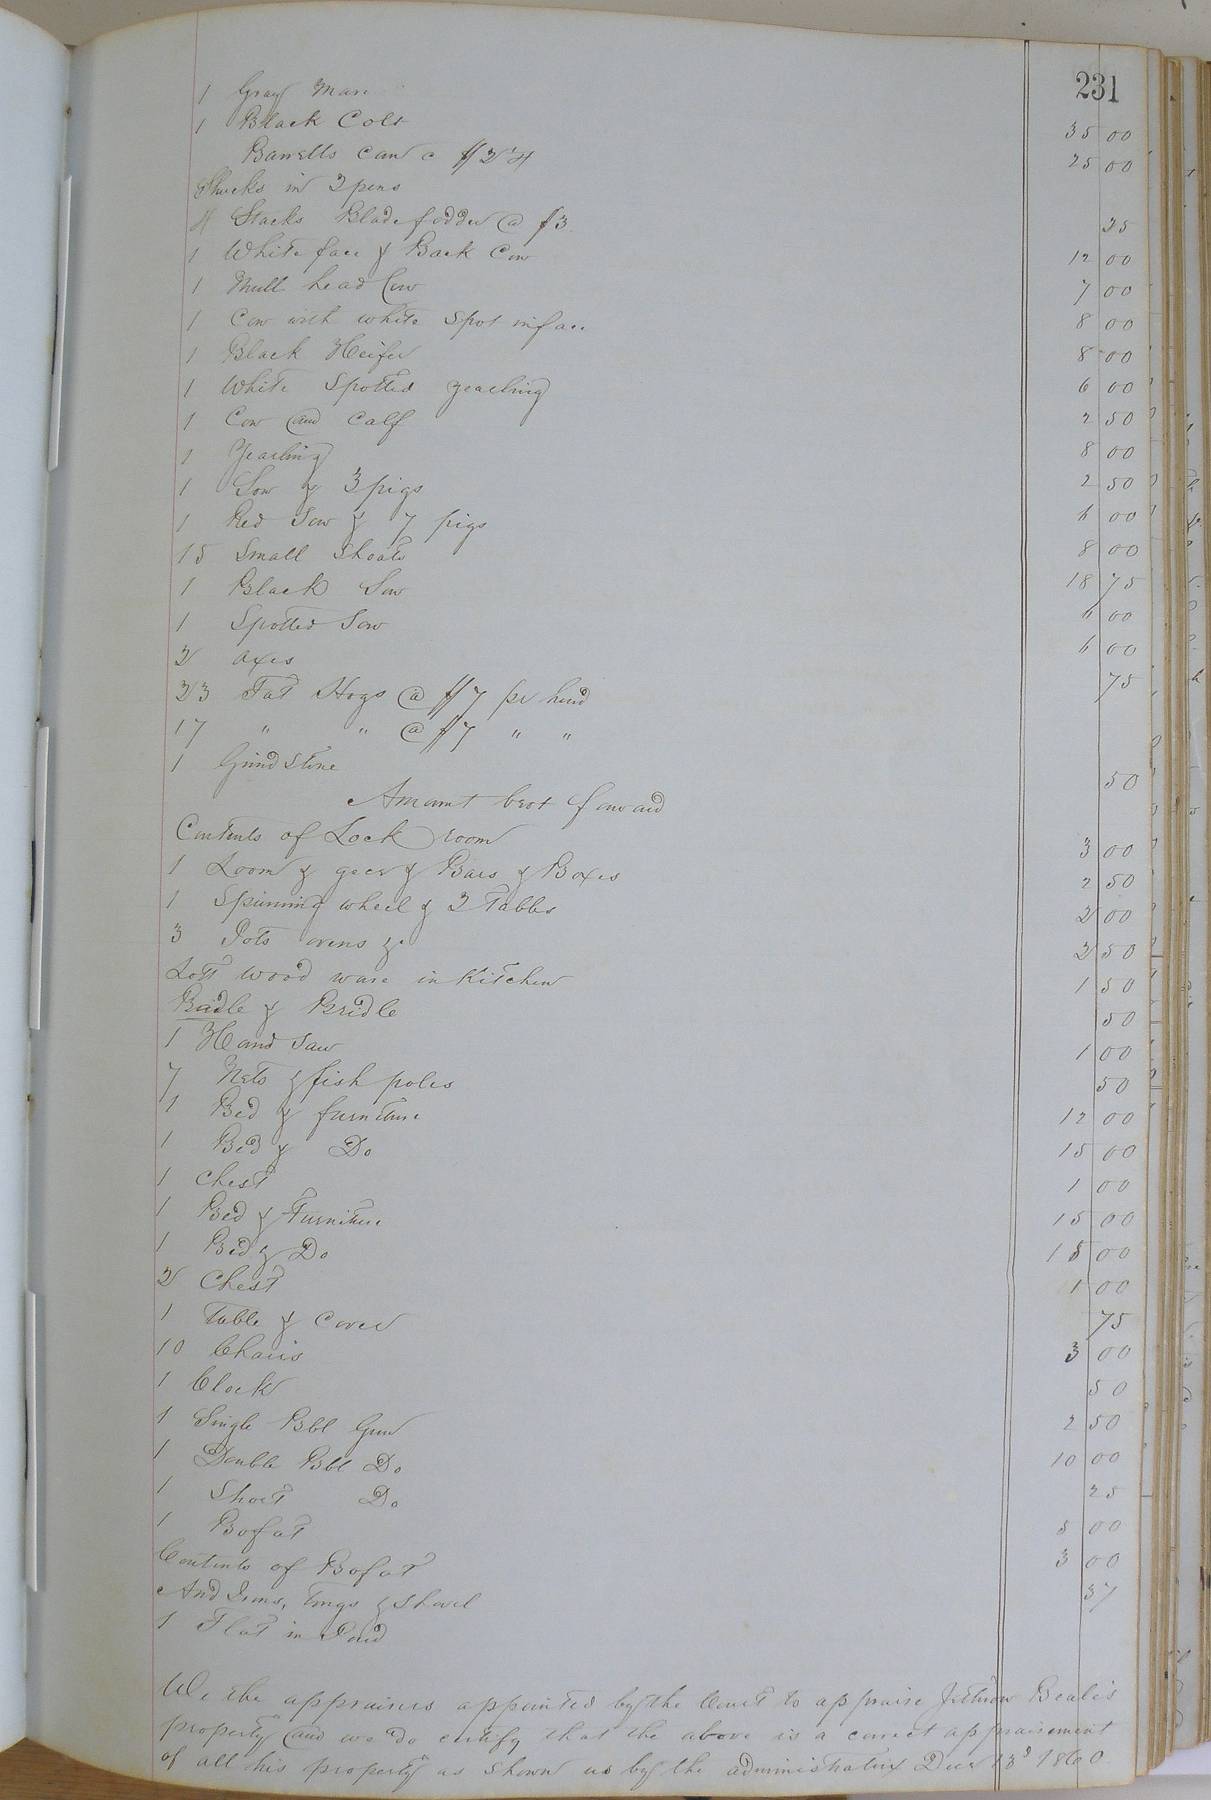 231
1 Gray Mare 35 00
1 Black Colt 25 00
Barrells corn @ $2 4
Shucks in 2 pens 25
4 Stacks Blade fodder @ $3 12 00
1 White face & Back Cow 7 00
1 Mull head Cow 8 00
1 Cow with white Spot in face 8 00
1 Black Heifer 6 00
1 White Spotted yearling 2 50
1 Cow and Calf 8 00
1 Yearling 2 50
1 Sow & 3 pigs 6 00
1 Red Sow & 7 pigs 8 00
15 Small Shoats 18 75
1 Black Sow 6 00
1 Spotted Sow 6 00
2 axes 75
23 Fat Hogs @ $7 per hund
17 " " @ $7 " "
1 Grind Stone 50
Amount brot forward
Contents of Lock room 3 00
1 Loom & geer & Bars & Boxes 2 50
1 Spinning wheel & 2 Tables 2 00
3 Pots ovens & 2 50
Lott wood ware in Kitchen 1 50
Bridle & Bridle 50
1 Hand Saw 1 00
7 Nets & fish poles 50
1 Bed & furniture 12 00
1 Bed & Do 15 00
1 Chest 1 00
1 Bed & Furniture 15 00
1 Bed & Do 15 00
2 Chest 1 00
1 Table & Cover 75
10 Chairs 3 00
1 Clock 50
1 Single Bbl Gun 2 50
1 Double Bbl Do 10 00
1 Short Do 25
1 Bofat 5 00
Contents of Bofat 3 00
And Irons, tongs & Shovel 37
1 Flat in Pond
We the appraisers appointed by the Court to appraise Jethrow Beale's
property and we do certify that the above is a correct appraisement
of all his property as shown us by the administratrix Decr 13d 1860